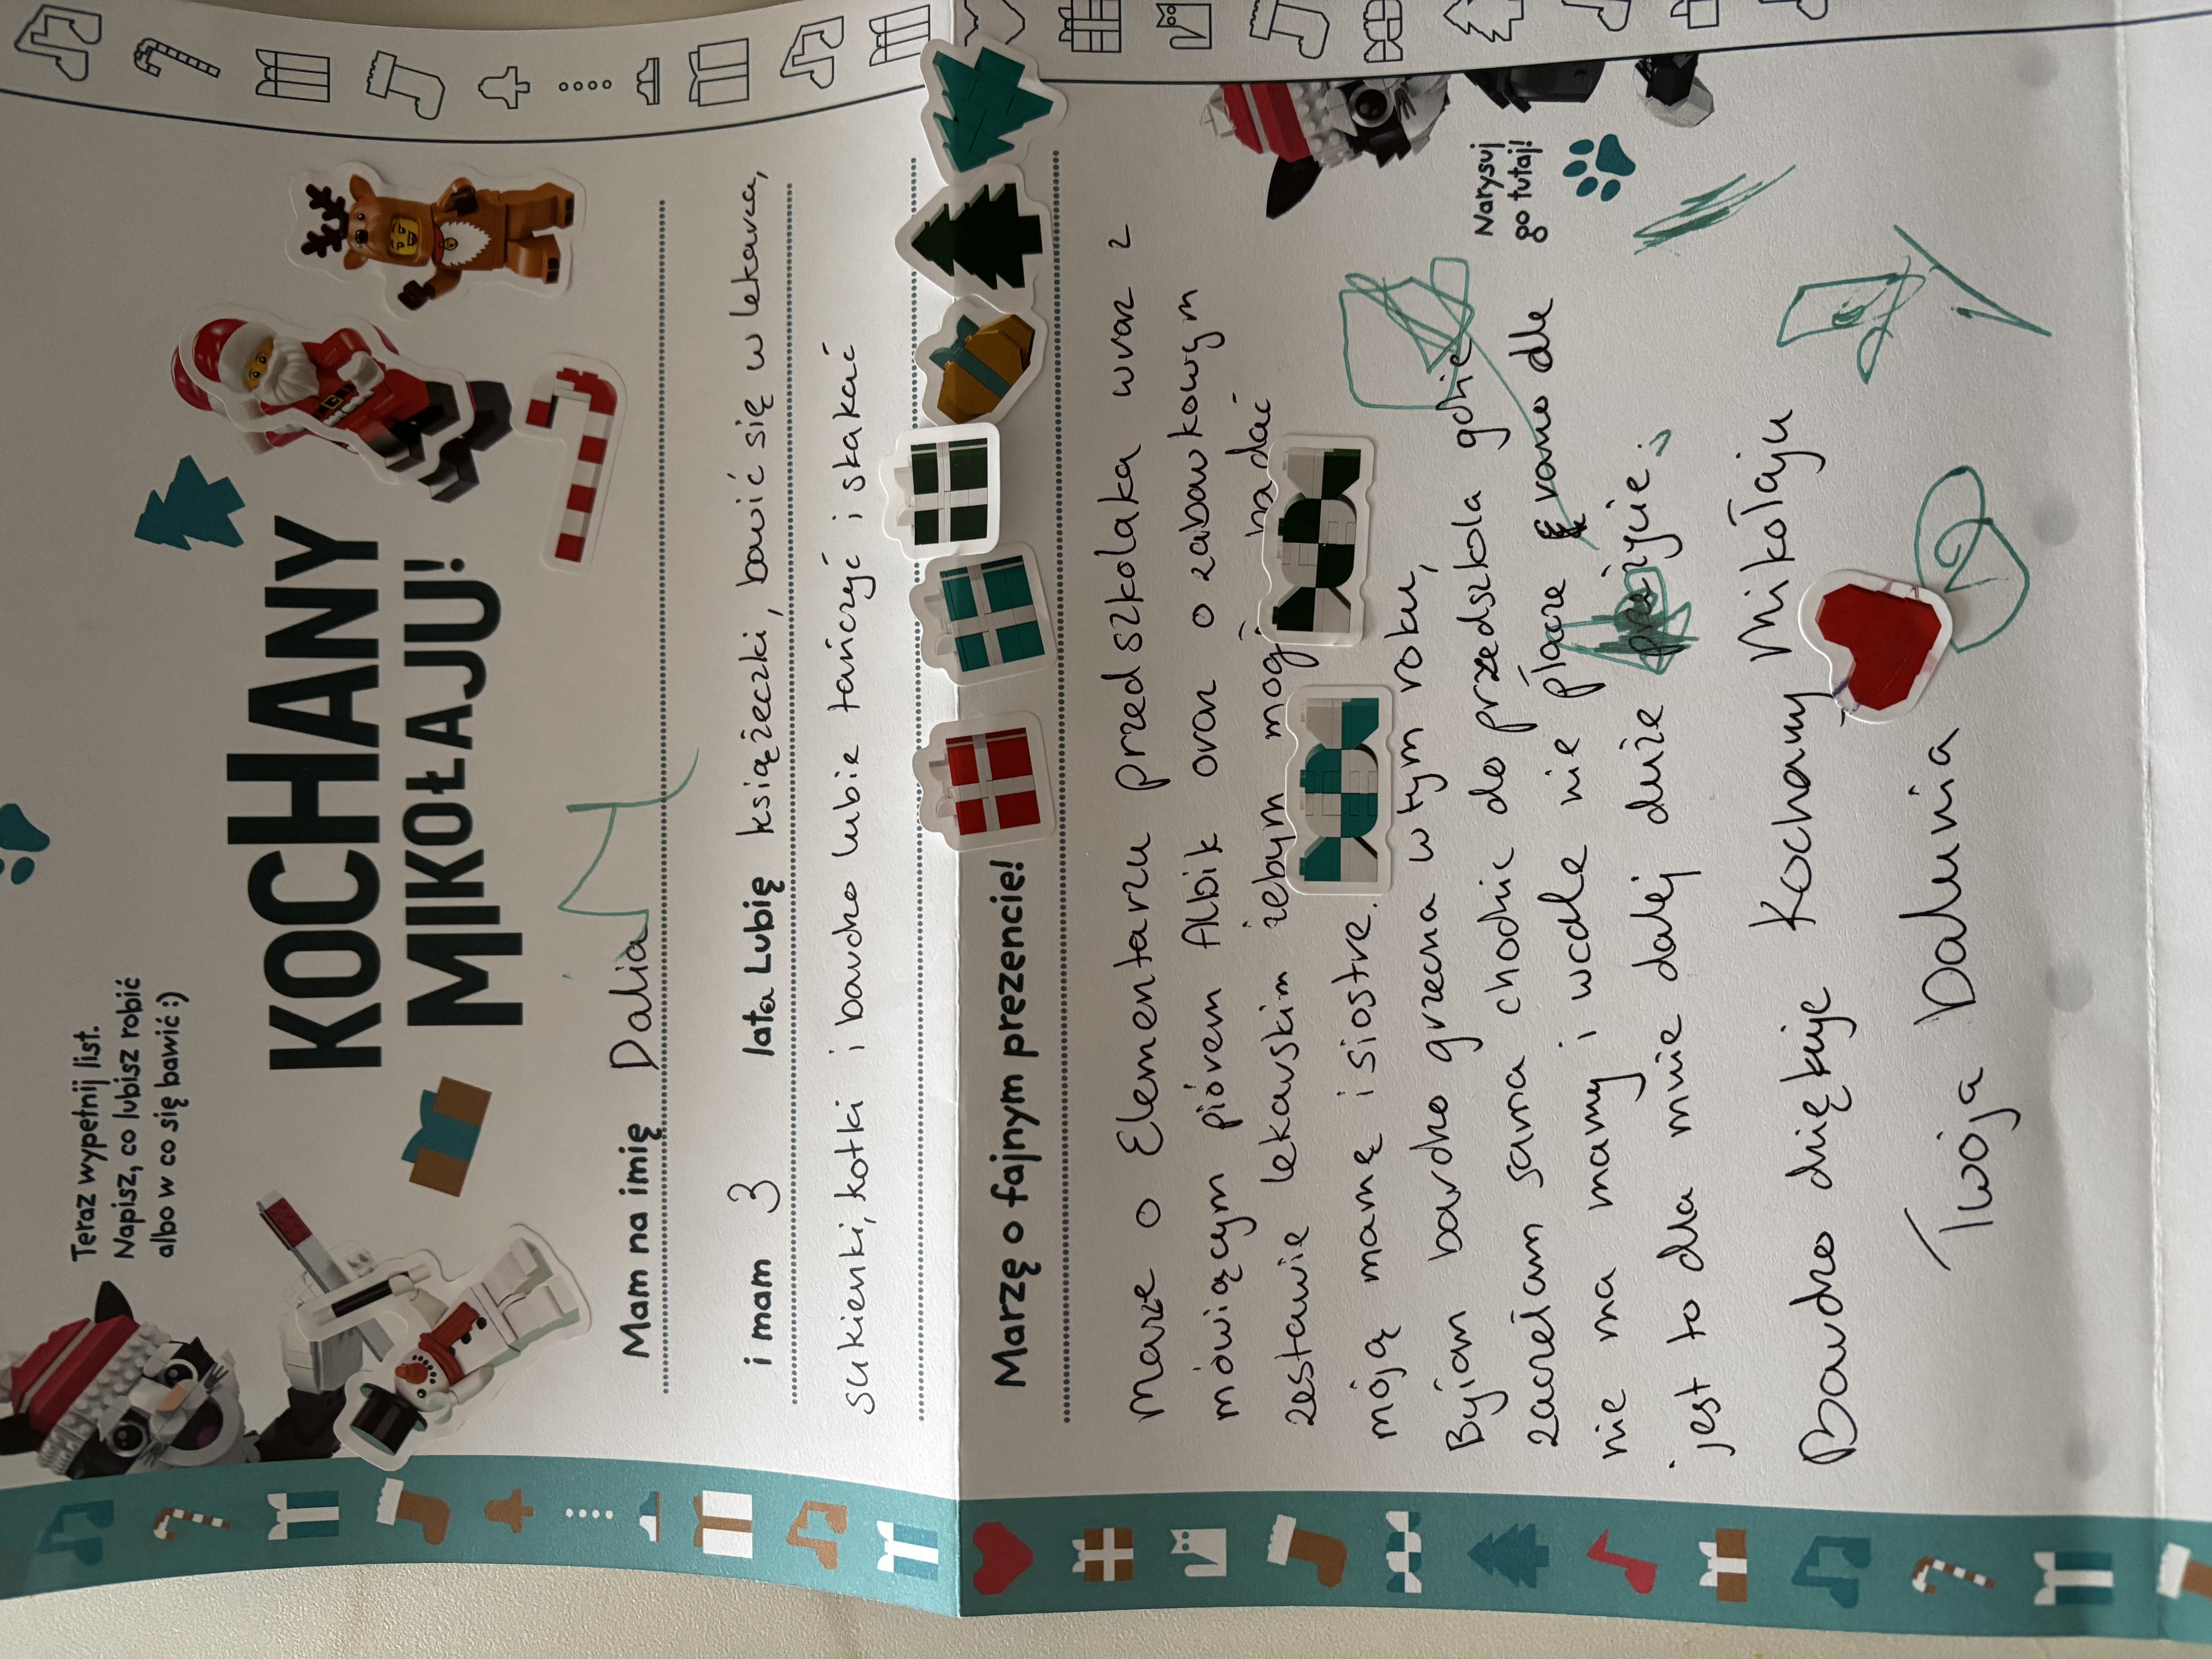 Teraz wypełnij list.
Napisz, co lubisz robić
albo w co się bawić :)
KOCHANY
MIKOŁAJU!
Mam na imię Dalia
i mam 3 lata Lubię książeczki, bawić się w lekarza,
sukienki, kotki i bardzo lubie tańczyć i skakać
Marzę o fajnym prezencie!
Marze o Elementarzu przedszkolaka wraz z
mówiącym piórem Albik oraz o zabawkowym
zestawie lekarskim żebym mog badać
moją mamę i siostre.
Byłam bardzo grzeczna w tym roku,
zaczełam sama chodzic do przedszkola gdzie
nie ma mamy i wcale nie płacze rano ale
jest to dla mnie dalej duże przeżycie.
Bardzo dziękuje Kochany Mikołaju
Twoja Dalunia
Narysuj
go tutaj!